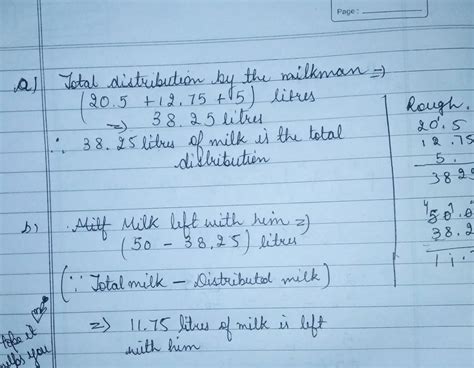 Page :
a) Total distribution by the milkman ⇒
(20.5 + 12.75 + 5) litres
⇒ 38.25 litres
∴ 38.25 litres of milk is the total
distribution
b) Milk left with him ⇒
(50 - 38.25) litres
(∵ Total milk - Distributed milk)
⇒ 11.75 litres of milk is left
with him
Rough.
20.5
12.75
5.
38.25
50.0
38.2
11.
hope it
helps you